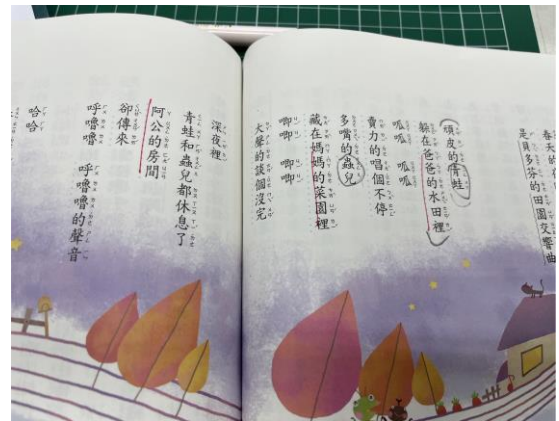 春天的夜
是貝多芬的田園交響曲
頑皮的青蛙
躲在爸爸的水田裡
呱呱 呱呱
賣力的唱個不停
多嘴的蟲兒
藏在媽媽的菜園裡
唧唧 唧唧
大聲的談個沒完
深夜裡
青蛙和蟲兒都休息了
阿公的房間
卻傳來
呼嚕嚕 呼嚕嚕的聲音
哈哈